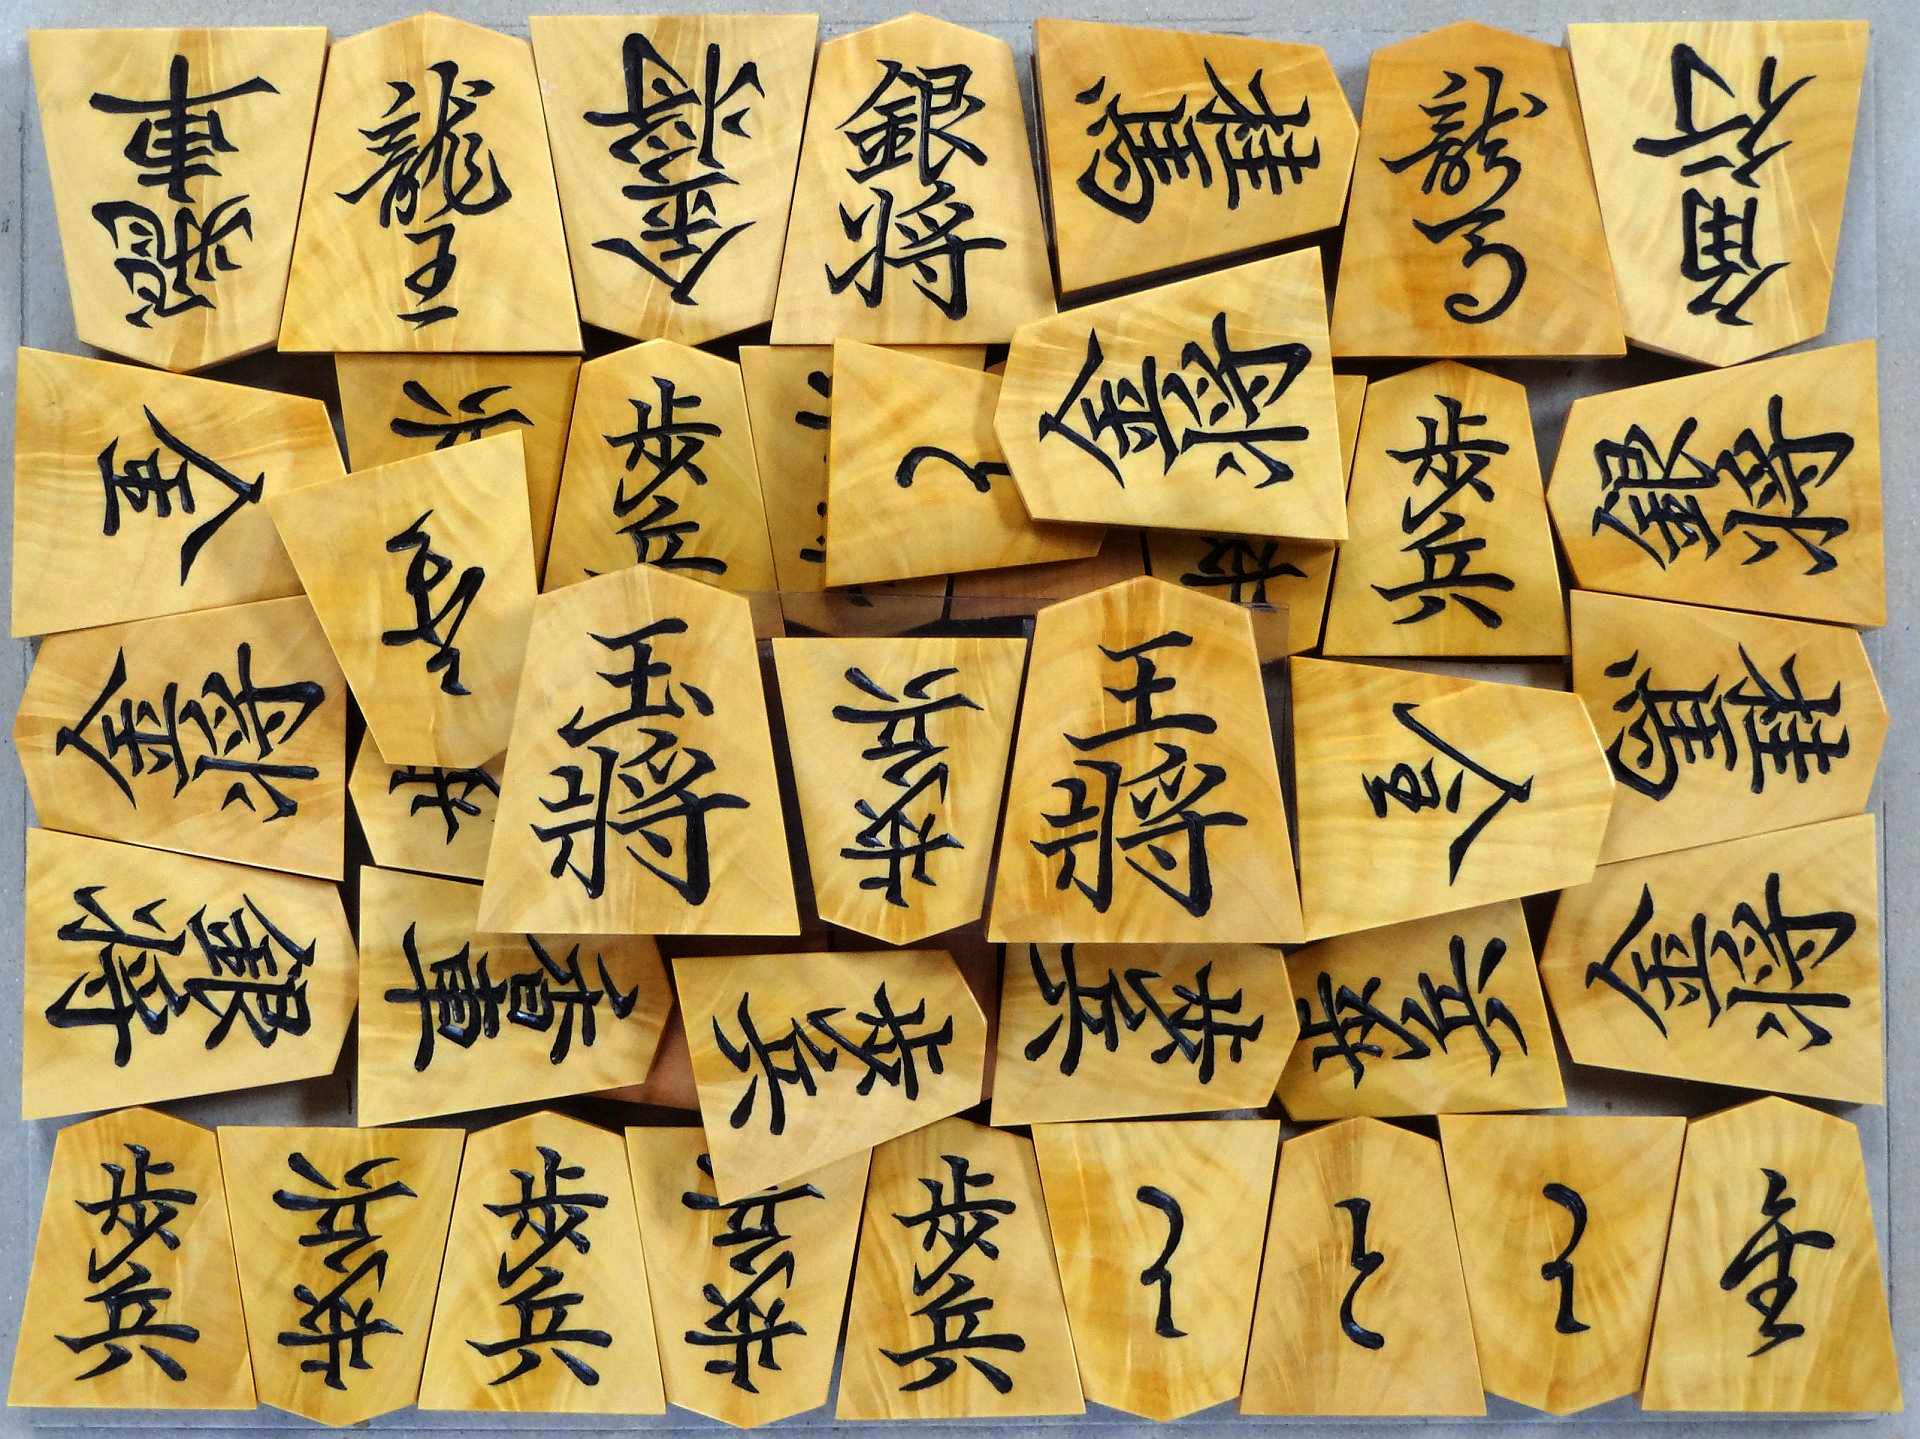 飛車
龍王
金将
銀将
桂馬
龍馬
角行
歩兵
と
金将
歩兵
銀将
金将
玉將
歩兵
王將
桂馬
銀将
香車
歩兵
歩兵
歩兵
金将
歩兵
歩兵
歩兵
歩兵
歩兵
と
と
と